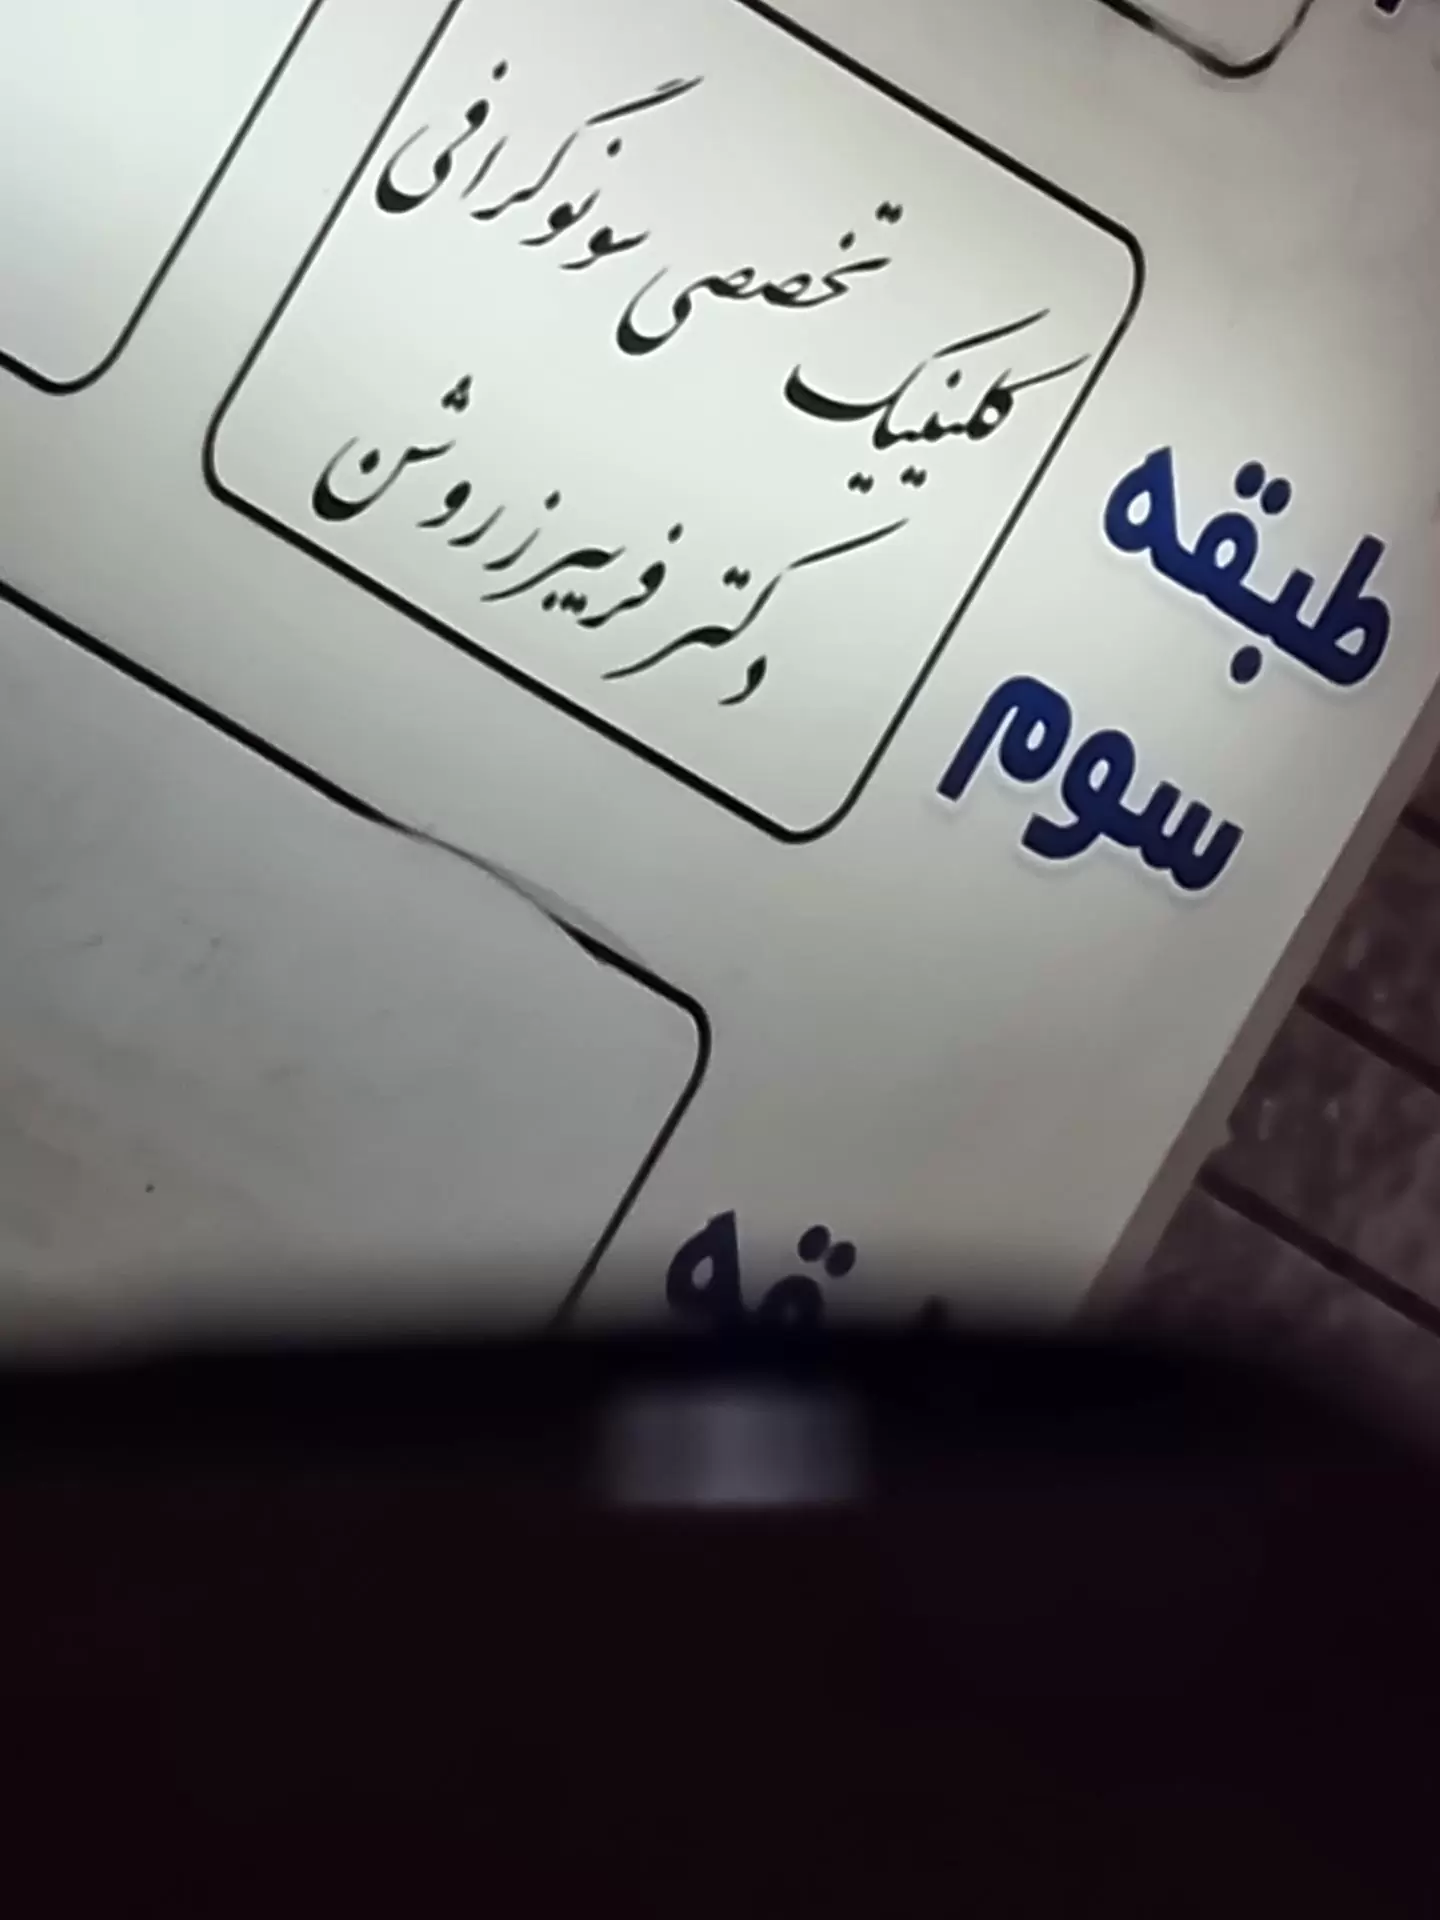 کلینیک تخصصی سونوگرافی
دکتر فریبرز روشن
طبقه
سوم